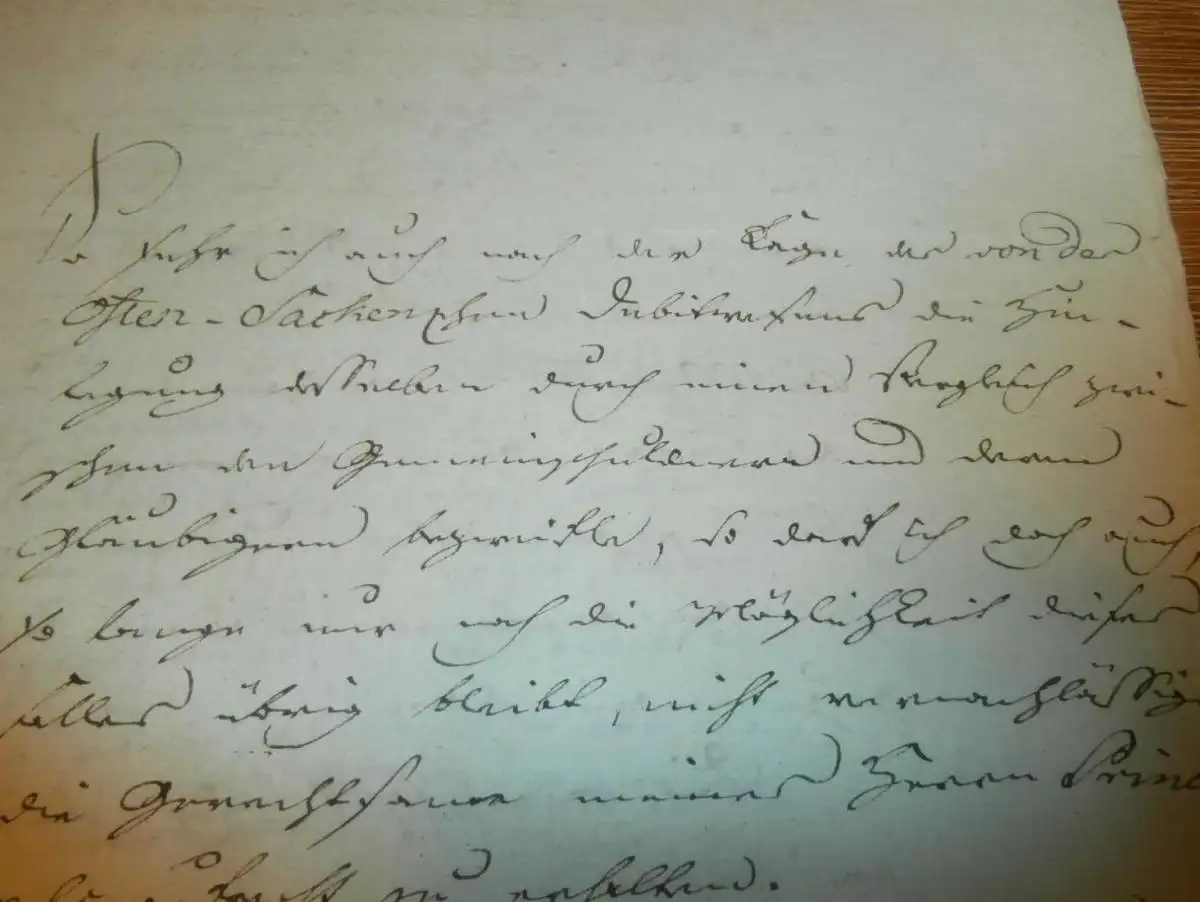 So sehr ich auch nach der Lage des von der
Osten-Sackenschen Debitwesens die Hin-
legung desselben durch einen Vergleich zwi-
schen den Gemeinschuldnern und deren
Gläubigern bezweifle, so darf ich doch auch,
so lange nur noch die Möglichkeit dieses
Falles übrig bleibt, nicht vernachlässig
die Gerechtsame meines Herrn Princ
zu erhalten.